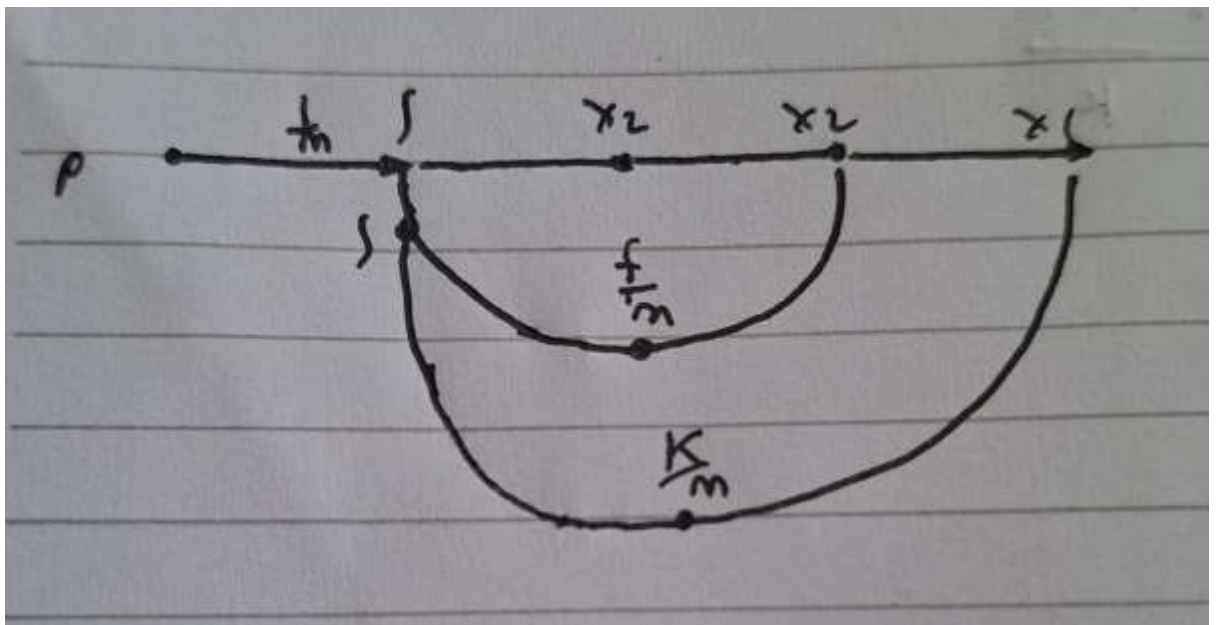 P 1/m S x2 x2 x1
S
f/m
K/m